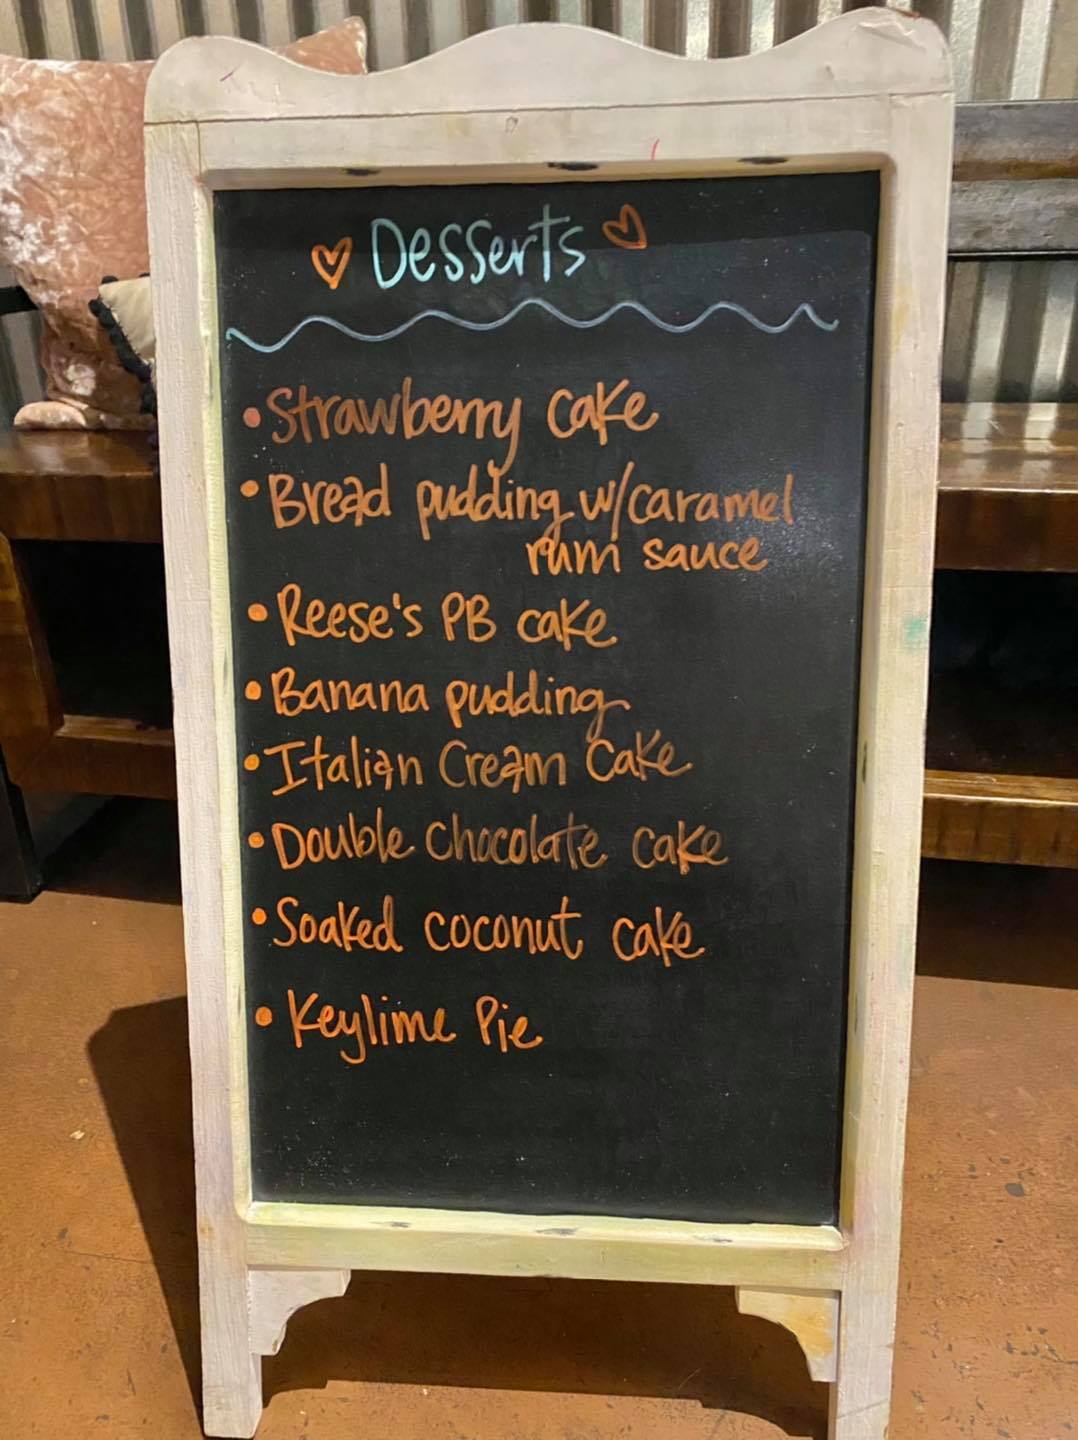 Desserts
• Strawberry cake
• Bread pudding w/caramel
rum sauce
• Reese's PB cake
• Banana pudding
• Italian Cream Cake
• Double Chocolate cake
• Soaked coconut cake
• Keylime Pie